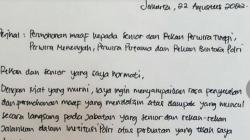 Jakarta, 22 Agustus 2022
Perihal : Permohonan maaf kepada Senior dan Rekan Perwira Tinggi,
Perwira Menengah, Perwira Pertama dan Rekan Bintara Polri
Rekan dan Senior yang saya hormati,
Dengan niat yang murni, saya ingin menyampaikan rasa penyesalan
dan permohonan maaf yang mendalam atas dampak yang muncul
secara langsung pada Jabatan yang senior dan rekan-rekan
Jalankan dalam institusi Polri atas perbuatan yang telah saya